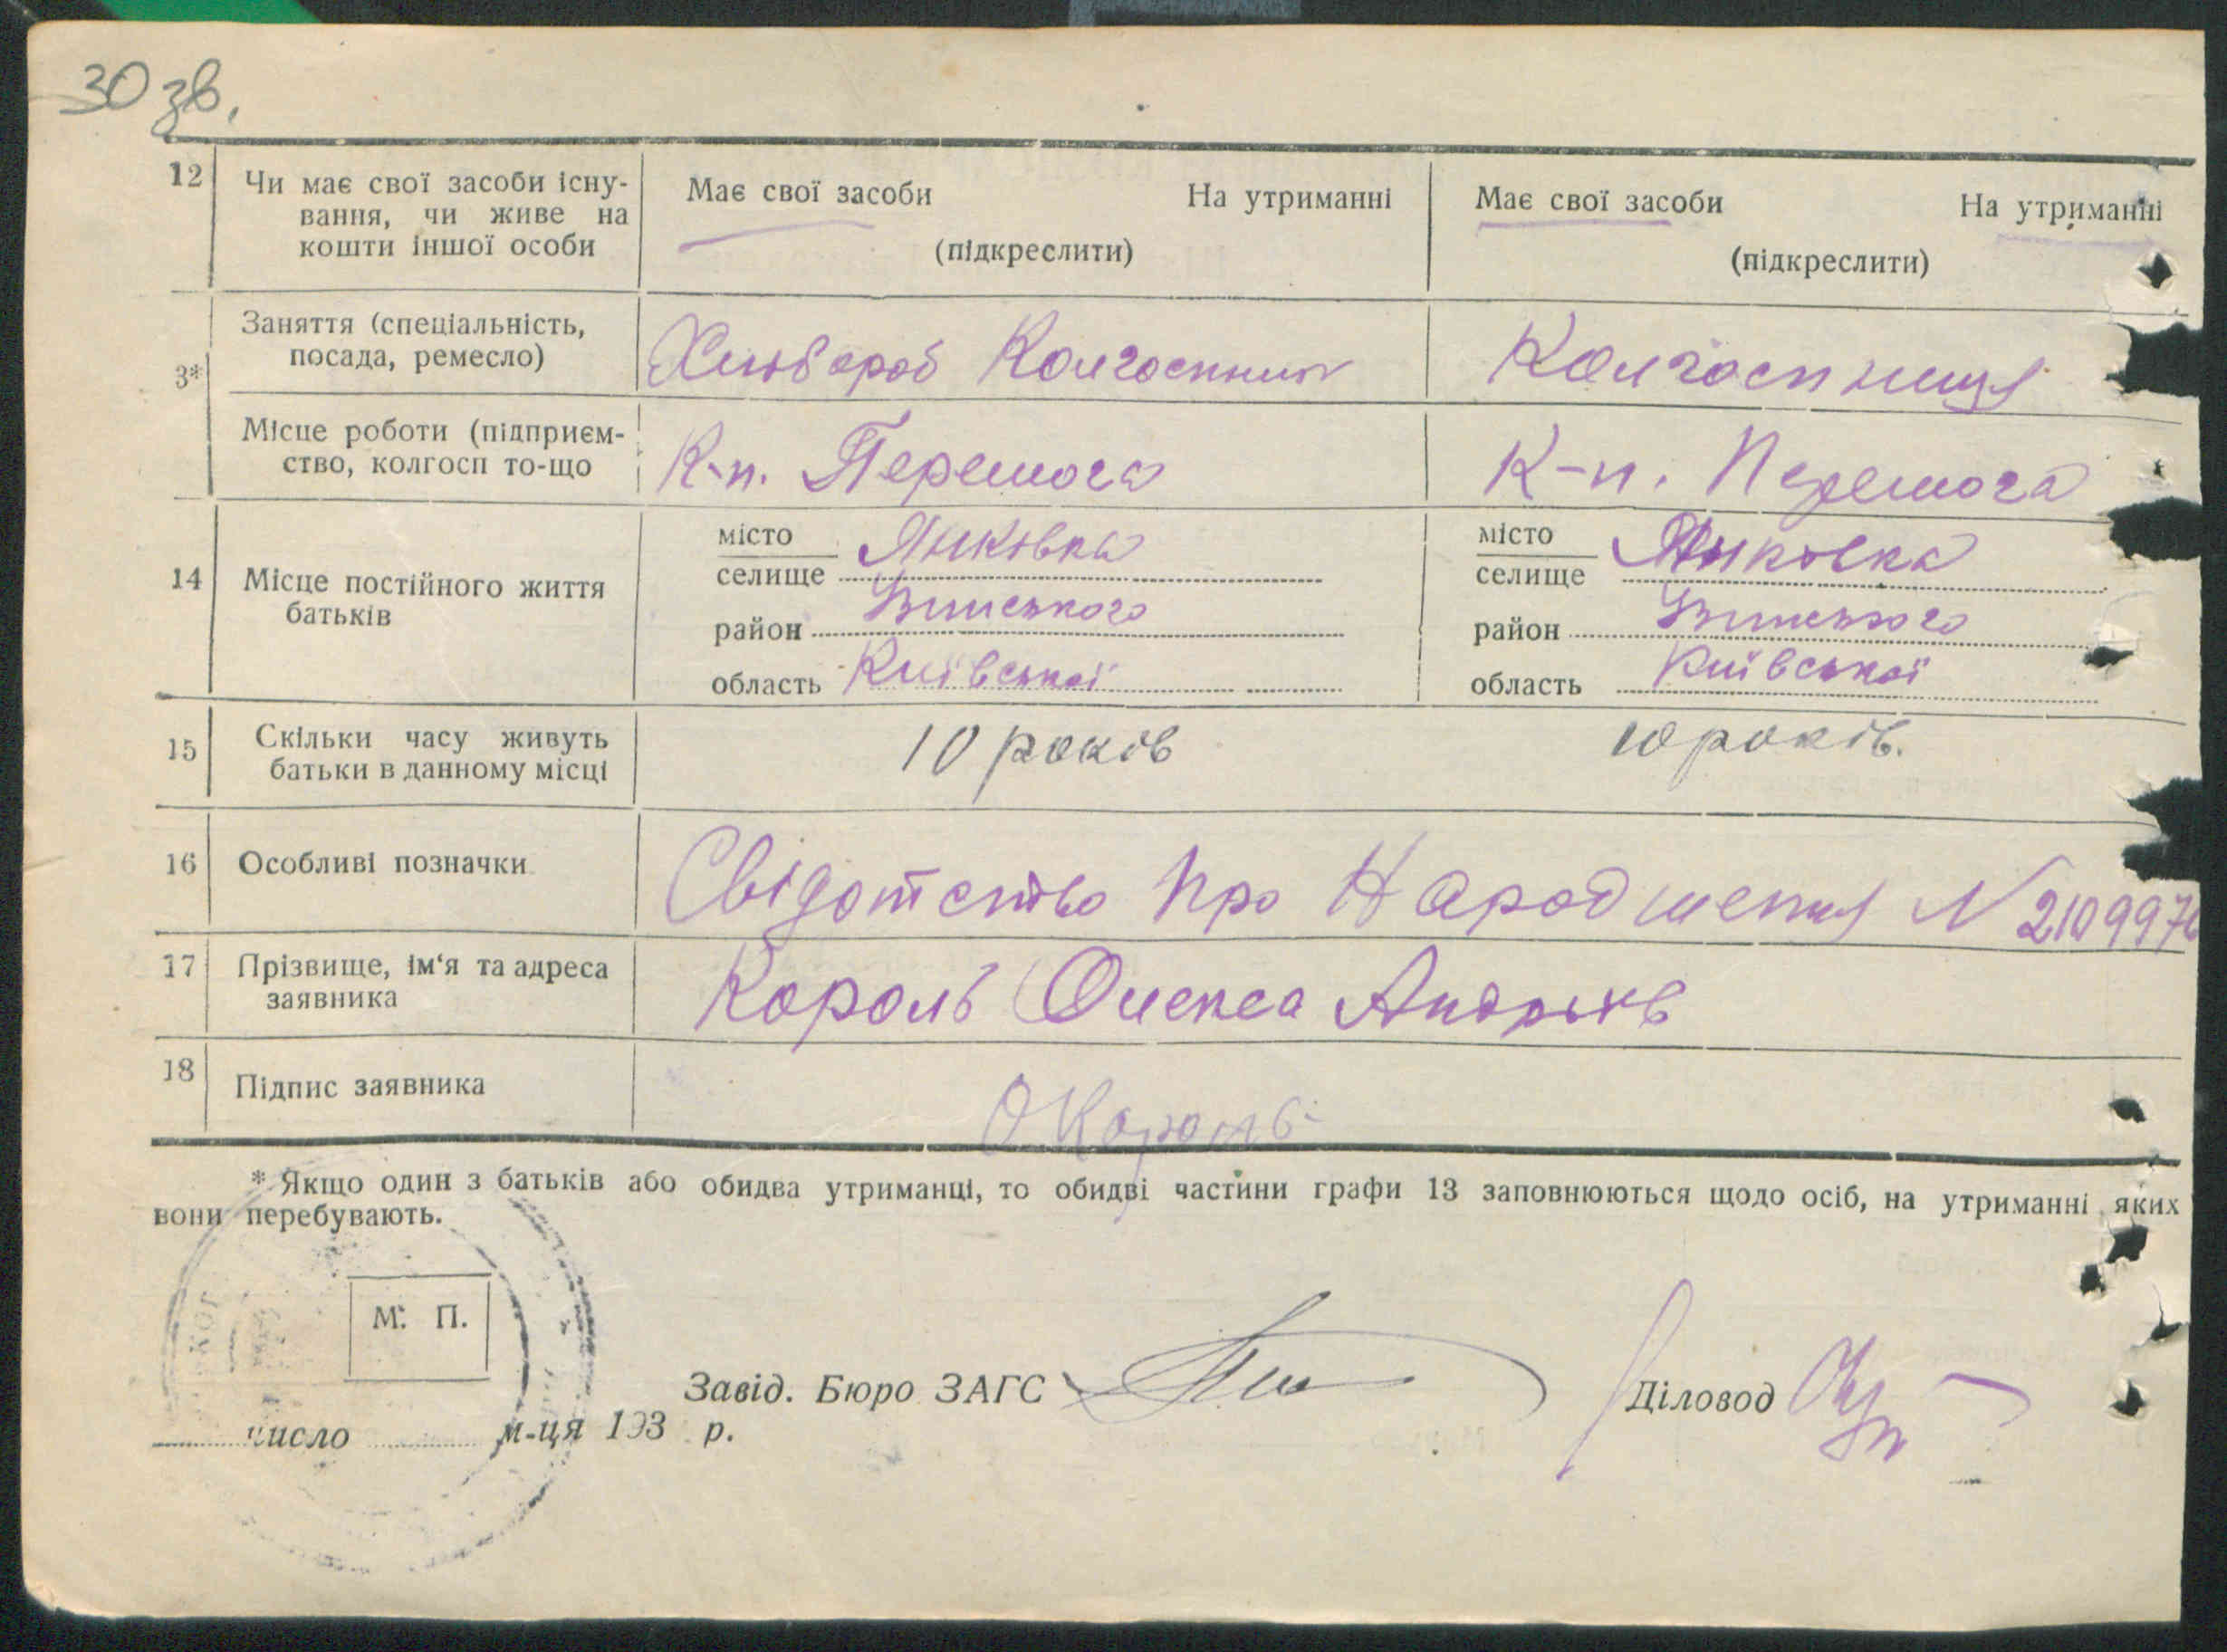 30 зв.
12 Чи має свої засоби існу-
вання, чи живе на
кошти іншої особи
Має свої засоби На утриманні
(підкреслити)
Має свої засоби На утриманні
(підкреслити)
3*
Заняття (спеціальність,
посада, ремесло)
Хлібороб Колгоспник
Колгоспниця
Місце роботи (підприєм-
ство, колгосп то-що
К-п. Перемога
К-п. Перемога
14 Місце постійного життя
батьків
місто
селище Янківка
район
область Київської
місто
селище Янківка
район
область Київської
15 Скільки часу живуть
батьки в данному місці
10 років
10 років.
16 Особливі позначки
Свідотство про Народження N 210997
17 Прізвище, ім‘я та адреса
заявника
Король Олекса Андрыєв
18 Підпис заявника
О Король
* Якщо один з батьків або обидва утриманці, то обидві частини графи 13 заповнюються щодо осіб, на утриманні яких
вони перебувають.
М. П.
Завід. Бюро ЗАГС
Діловод
число м-ця 193 р.